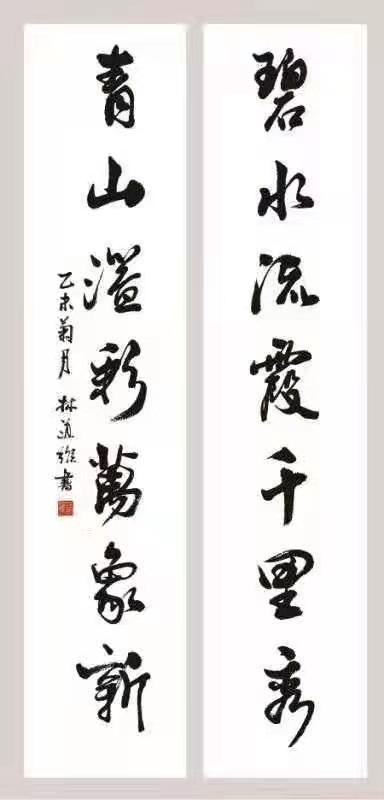 碧水流霞千里秀
青山溢彩萬象新
乙未菊月 林道書